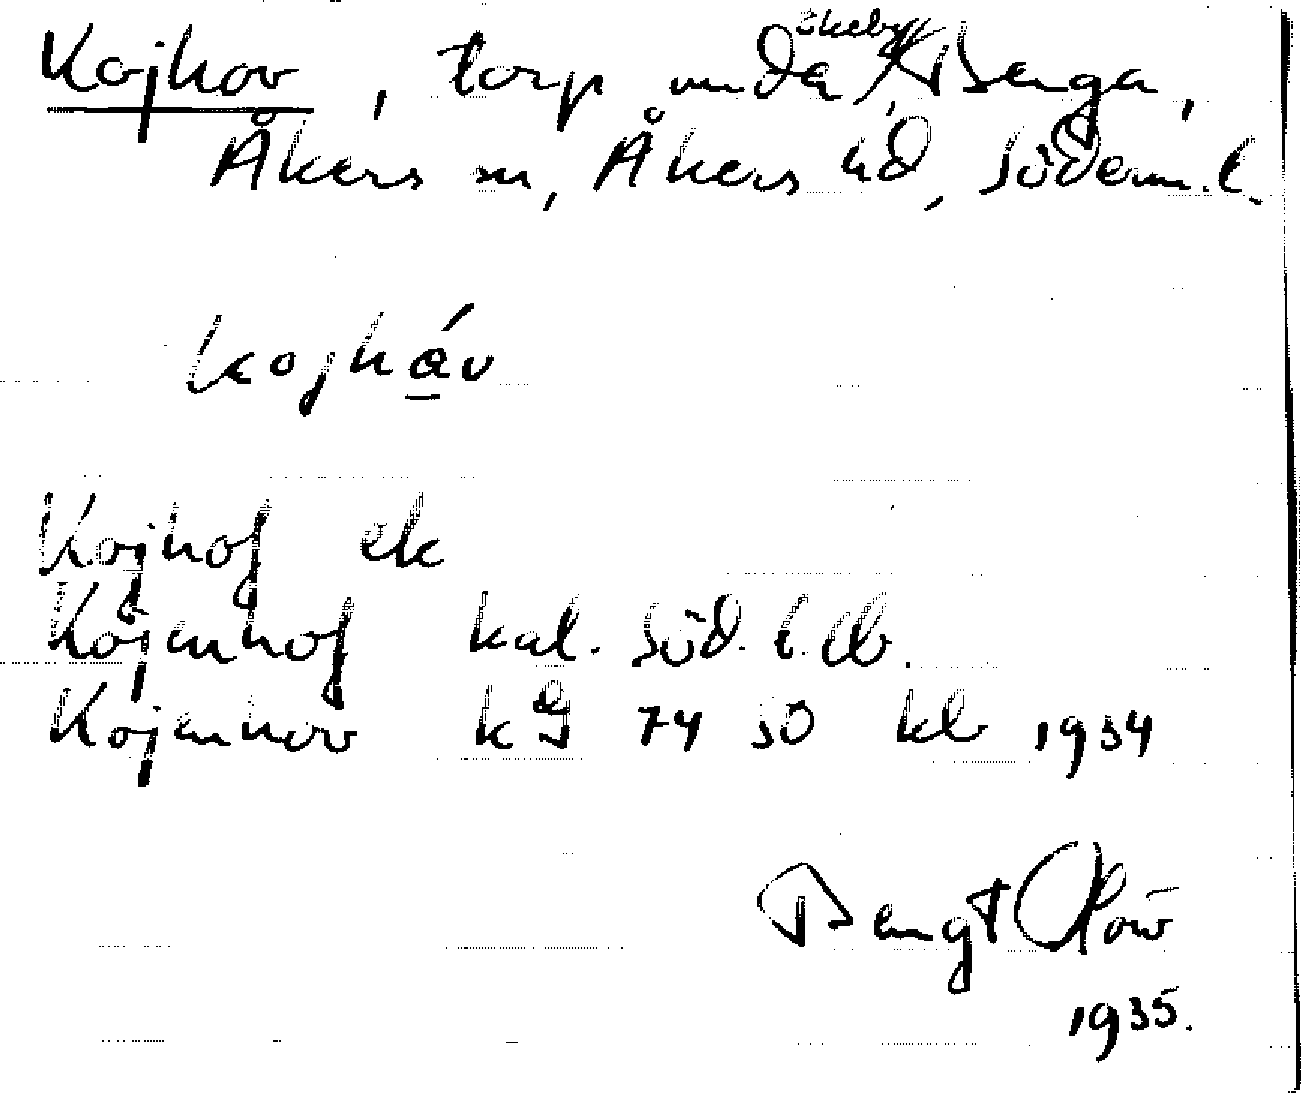 Kojhov, torp unda Åkeby, Berga,
Åkers sn, Åkers hd, Söderm. l.
kojháv
Kojhof ek
Kojenhof kat. Söd. l. ab.
Kojenhov kg 74 SO kb 1934
Bengt Olow
1935.